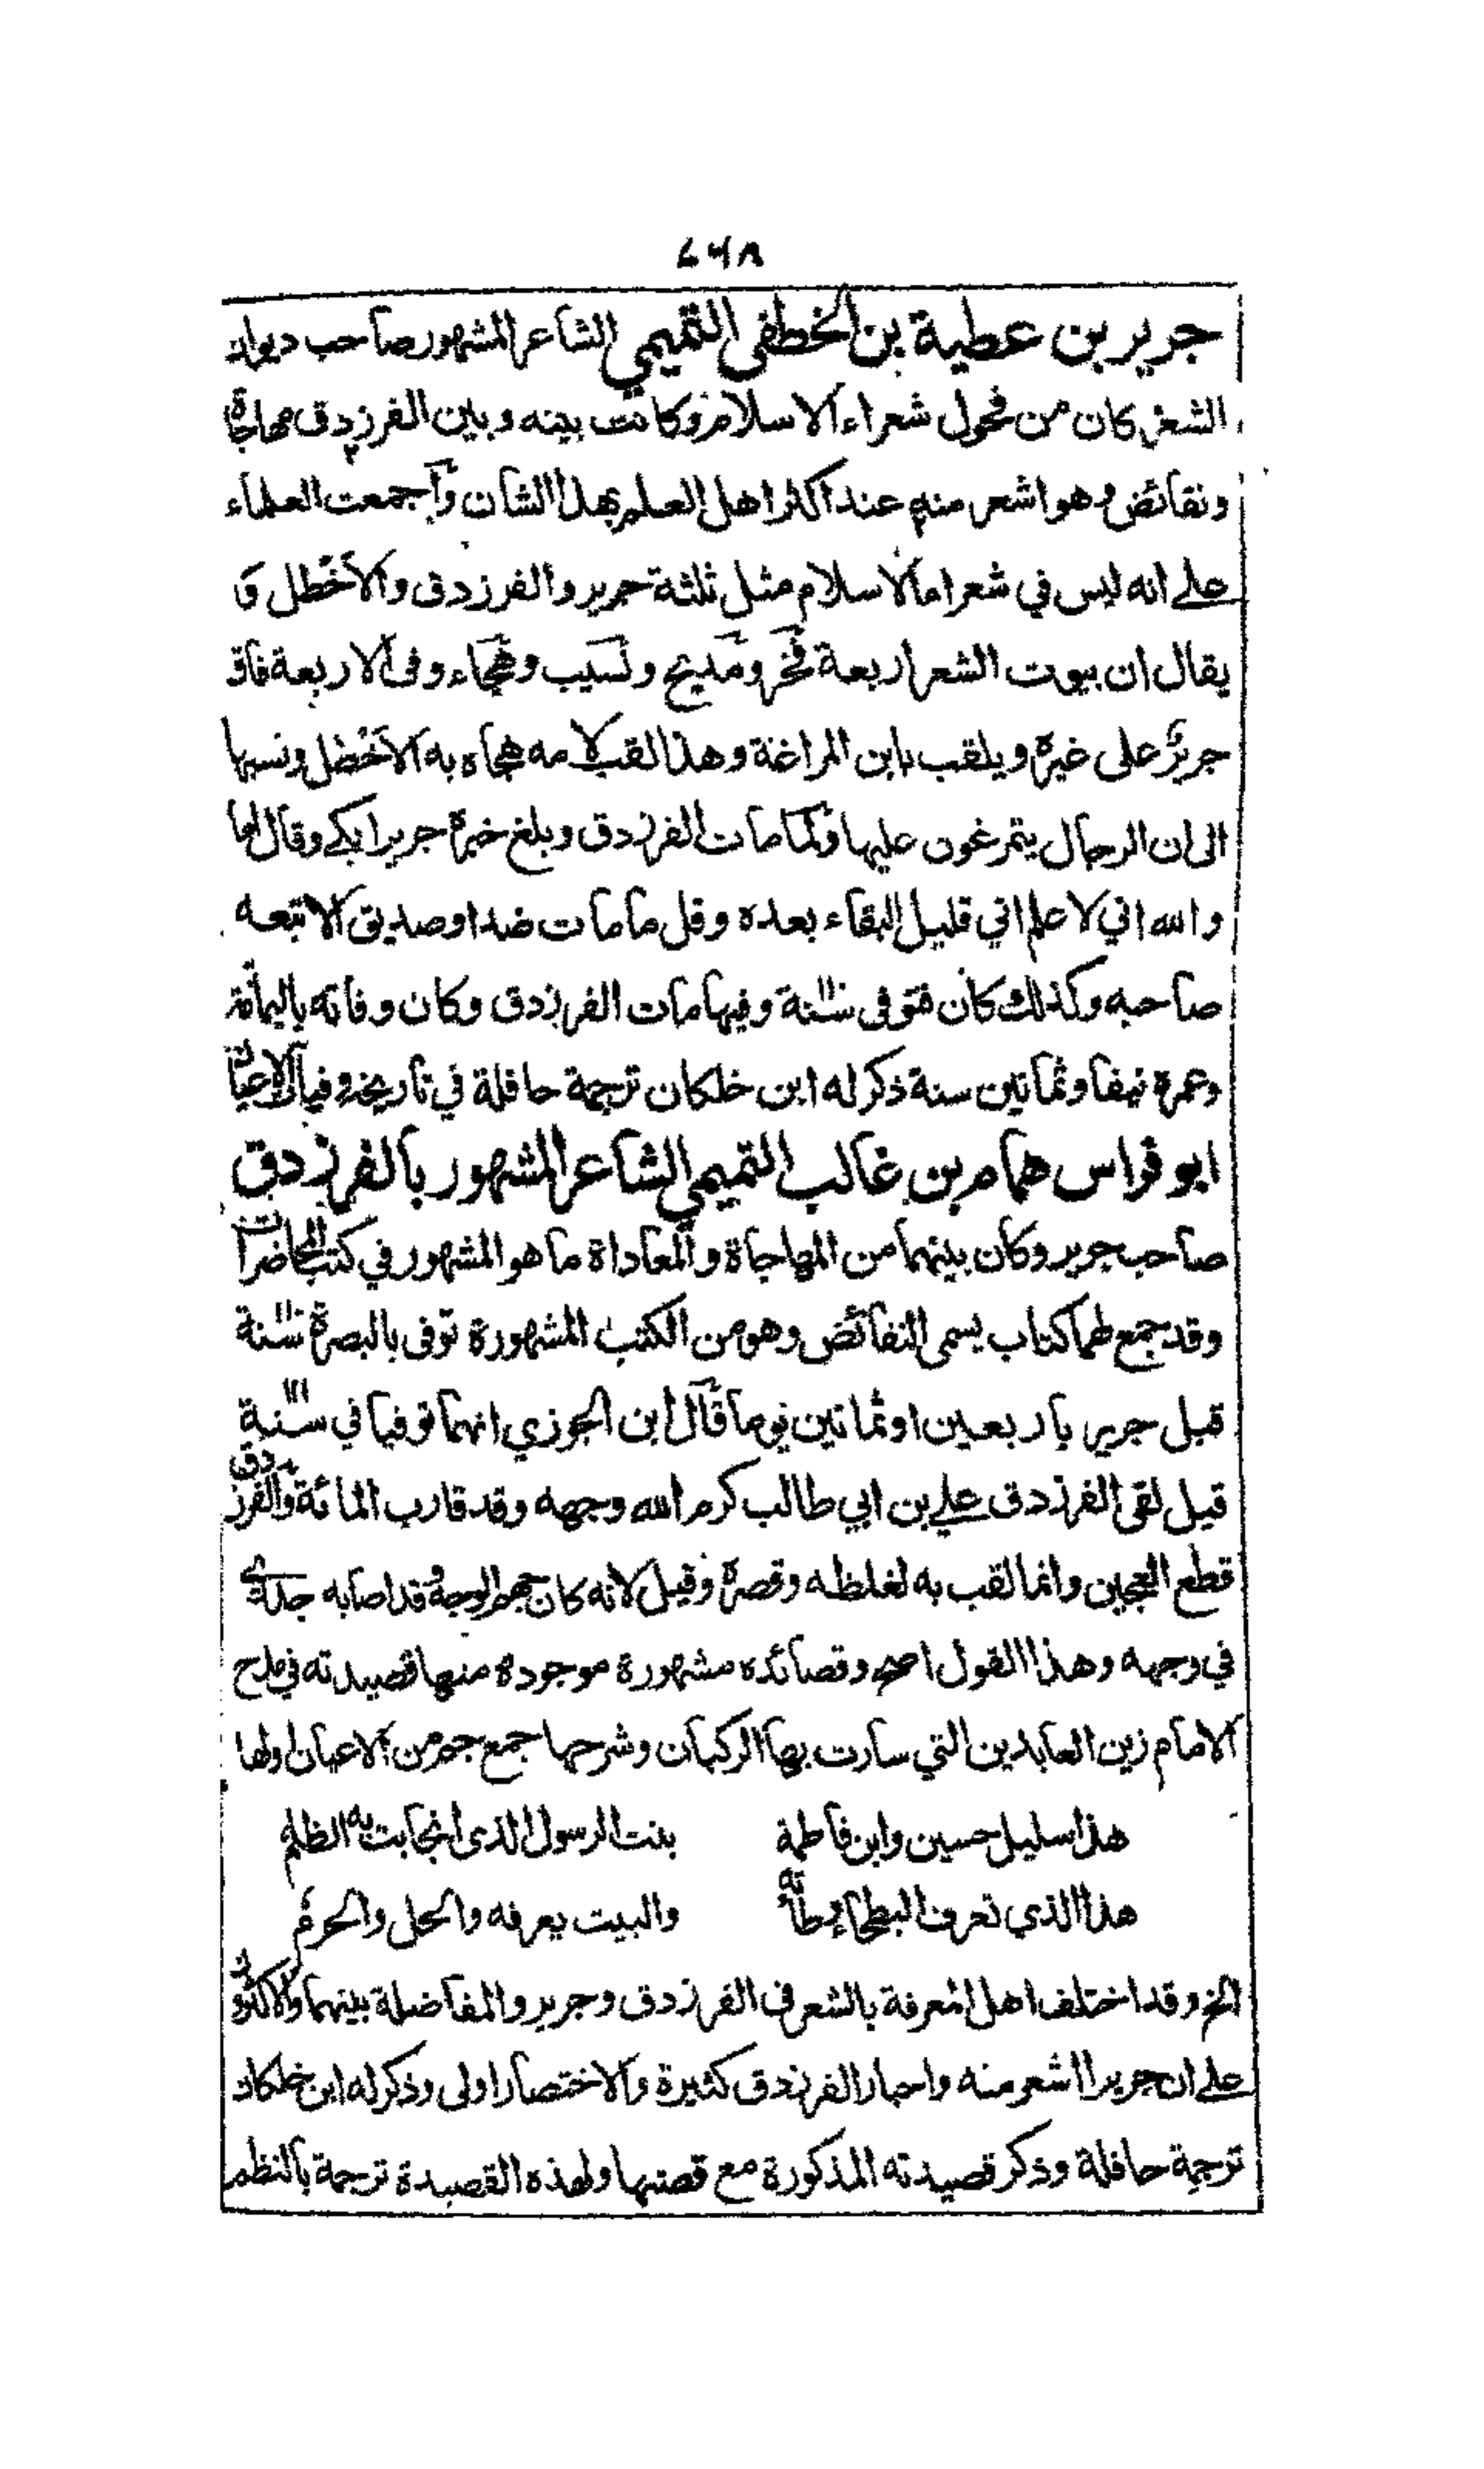 ٧٦٨
جرير بن عطية بن الخطفى التميمي الشاعر المشهور صاحب ديوان
الشعر كان من فحول شعراء الاسلام وكانت بينه وبين الفرزدق مهاجاة
ونقائض وهو اشعر منه عند اكثر اهل العلم بهذا الشان واجمعت العلماء
على انه ليس في شعراء الاسلام مثل ثلثة جرير والفرزدق والاخطل و
يقال ان بيوت الشعر اربعة فخر ومديح ونسيب وهجاء وفى الاربعة فاق
جرير على غيره ويلقب بابن المراغة وهذا لقب لامه هجاه به الاخطل ونسبها
الى ان الرجال يتمرغون عليها ولما مات الفرزدق وبلغ خبره جريرا بكى وقال اما
والله اني لاعلم اني قليل البقاء بعده وقل ما مات ضد او صديق الا تبعه
صاحبه وكذلك كان فتوفى سنة وفيها مات الفرزدق وكان وفاته باليمامة
وعمره نيفا وثمانين سنة ذكر له ابن خلكان ترجمة حافلة في تاريخه وفيات الاعيان
ابو فراس همام بن غالب التميمي الشاعر المشهور بالفرزدق
صاحب جرير وكان بينهما من المهاجاة والمعاداة ما هو المشهور في كتب المحاضرات
وقد جمع لهما كتاب يسمى النقائض وهو من الكتب المشهورة توفى بالبصرة سنة
قبل جرير باربعين او ثمانين يوما قال ابن الجوزي انهما توفيا في سنة
قيل لقى الفرزدق علي بن ابي طالب كرم الله وجهه وقد قارب المائة والفرزدق
قطع العجين وانما لقب به لغلظه وقصره وقيل لانه كان جهم الوجه قد اصابه جدري
في وجهه وهذا القول اصح وقصائده مشهورة موجودة منها قصيدته في مدح
الامام زين العابدين التي سارت بها الركبان وشرحها جمع جم من الاعيان اولها
هذا سليل حسين وابن فاطمة بنت الرسول الذى انجابت به الظلم
هذا الذي تعرف البطحاء وطأته والبيت يعرفه والحل والحرم
الخ وقد اختلف اهل المعرفة بالشعر فى الفرزدق وجرير والمفاضلة بينهما والاكثرون
على ان جريرا اشعر منه واخبار الفرزدق كثيرة والاختصار اولى وذكر له ابن خلكان
ترجمة حافلة وذكر قصيدته المذكورة مع قصتها ولهذه القصيدة ترجمة بالنظم